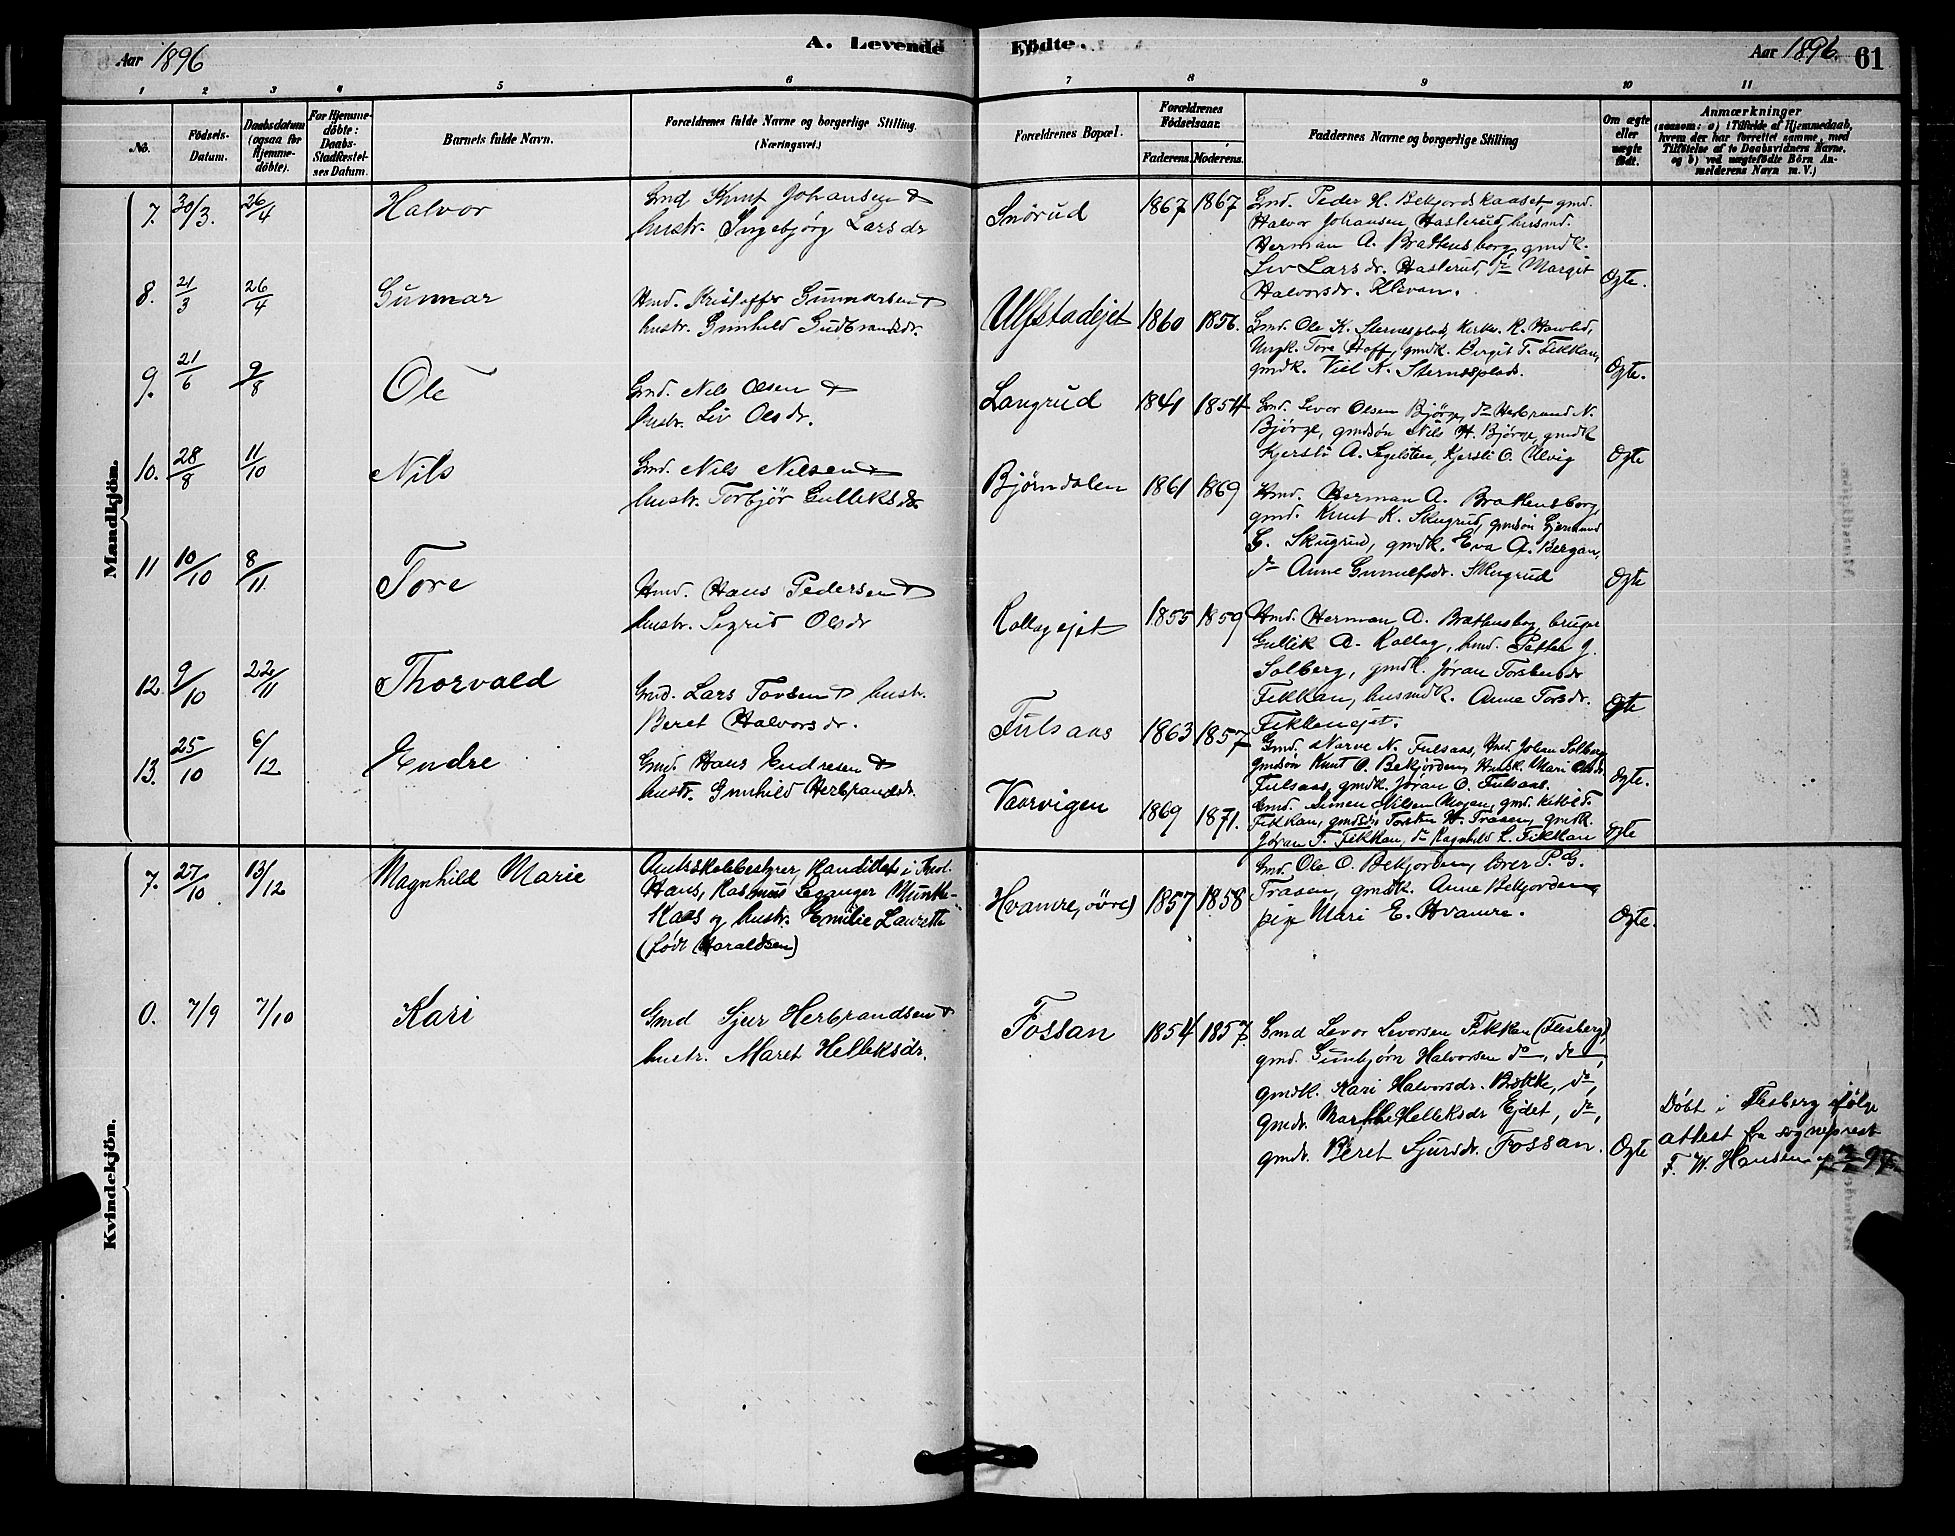 Aar 1896
A. Levende Fødte.
Aar 1896.
61
1 2 3 4 5 6 7 8 9 10 11
No.
Fødsels-Datum.
Daabsdatum (ogsaa for Hjemme-døbte).
For Hjemme-døbte: Daabs-Stadfæstel-ses Datum.
Barnets fulde Navn.
Forældrenes fulde Navne og borgerlige Stilling.
(Næringsvei.)
Forældrenes Bopæl.
Forældrenes Fødselsaar.
Faderens. Moderens.
Faddernes Navne og borgerlige Stilling
Om ægte eller uægte født.
Anmærkninger
(saasom: a) i Tilfælde af Hjemmedaab,
hvem der har forrettet samme, med
Tilføielse af to Daabsvidners Navne,
og b) ved uægtefødte Børn An-
melderens Navn m. V.)
Mandkjøn.
7. 30/3. 26/4 Halvor
Gmd Knut Johansen &
hustr. Ingebjørg Larsdr
Snørud 1867 1867
Gmd. Peder H. Bekjordskaaset, gmd.
Halvor Johansen Haslerud, husmd.
Herman A. Brattensborg, gmdk.
Liv Larsdr. Haslerud, do Margit
Halvorsdr. Kleven.
Ægte.
8. 21/3 26/4 Gunnar
Hmd. Kristoffer Gunnarsen &
hustr. Gunhild Gudbrandsdr.
Ulfstadejet 1860 1856.
Gmd. Ole K. Sternesplads, Kirkes. K. Havlid,
Ungk. Tore Hoff, gmdk. Birgit T. Fekkan,
gmdk. Viel K. Sternesplads.
Ægte.
9. 21/6 9/8 Ole
Gmd. Nils Olsen &
hustr. Liv Olsdr.
Langrud 1841 1854
Gmd. Levor Olsen Bjørge, do Herbrand N.
Bjørge, gmdsøn Nils H. Bjørge, gmdk
Kjersti A. Legelsten, Kjersti O. Ulvig
Ægte
10. 28/8 11/10 Nils
Gmd. Nils Nilsen &
hustr. Torbjør Gulleksdr.
Bjørndalen 1861 1869
Hmd. Herman A. Brattensborg,
gmd. Knut K. Skugrud, gmdsøn Gjermund
G. Skugrud, gmdk. Eva A. Bergan,
do Anne Gunnulfsdr. Skugrud
Ægte
11 10/10 8/11. Tore
Hmd. Hans Pedersen &
hustr. Sigrid Olsdr
Rollagejet 1855 1859
Hmd. Herman A. Brattensborg, bruger
Gullik A. Rollag, hmd. Petter J.
Solberg, gmdk. Jøran Torstensdr
Fekkan, husmdk. Anne Torsdr.
Fekkanejet.
Ægte
12. 9/10 22/11 Thorvald
Gmd. Lars Tovsen & hustr.
Beret Halvorsdr.
Fulsaas 1863 1857
Gmd. Narve N. Fulsaas, Hmd. Johan Solberg,
gmdsøn Knut O. Bekjorden, Hmdk. Mari Olsdr.
Fulsaas, gmdk. Jøran O. Fulsaas.
Ægte.
13. 25/10 6/12 Endre
Gmd. Hans Endresen &
hustr. Gunhild Herbrandsdr.
Vaarvigen 1869 1871.
Gmd. Simen Nilsen Mogen, gmd. Ketil T.
Fekkan, gmdsøn Torsten H. Traaen, gmdk.
Jøran T. Fekkan, do Ragnhild L. Fekkan
Ægte
Kvindekjøn.
7. 27/10 13/12 Magnhild Marie
Amtsskolebestyrer, Kandidat i Theol.
Hans, Rasmus Leganger Munthe-
Kaas og hustr. Emilie Laurette
(født Haraldsen)
Hvamre, øvre) 1857 1858
Gmd. Ole O. Bekjorden, brver P. G.
Traaen, gmdk. Anne Bekjorden,
pige Mari E. Hvamre.
Ægte.
0. 7/9 7/10 Kari
Gmd Sjur Herbrandsen &
hustr. Maret Helleksdr.
Fossan 1854 1857.
Gmd Levor Levorsen Fekkan (Flesberg)
gmd. Gunbjørn Halvorsen do, do,
gmdk. Kari Halvorsdr. Brække, do,
gmdr. Marthe Helleksdr Ejdet, do,
gmdr. Beret Sjursdr. Fossan.
Ægte
Døbt i Flesberg ifølge
attest fra sogneprest
F. W. Hansen af